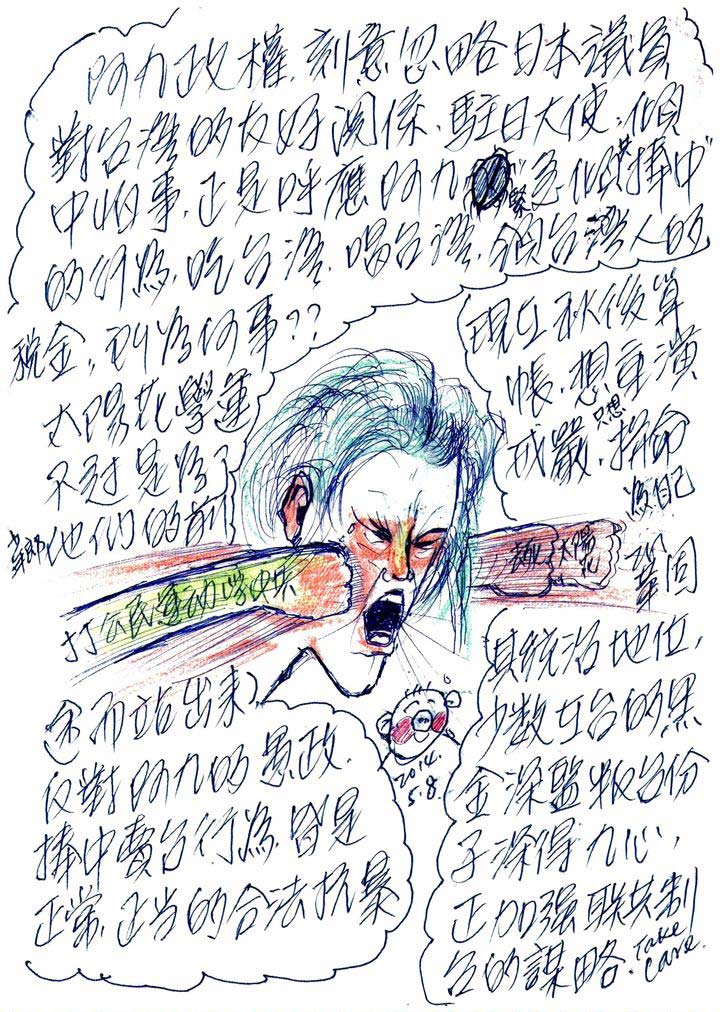 阿九政權.刻意忽略日本議員
對台灣的友好關係.駐日大使:傾
中怕事.正是呼應阿九的緊急傾"捧中"
的行為.吃台灣.喝台灣.領台灣人的
稅金,到為何事??
太陽花學運
不過是為了
他們的前
念而站出來
反對阿九的愚政.
捧中賣台行為.皆是
正常.正当的合法抗暴
打公民運动學中共
太陽花
現在秋後算
帳.想重演
戒嚴.只想拚命
為自己
鞏固
其統治地位,
少数在台的黑
金深藍叛台份
子深得九心,
正加强联共制
台的謀略.Take
care.
2014.
5.8.